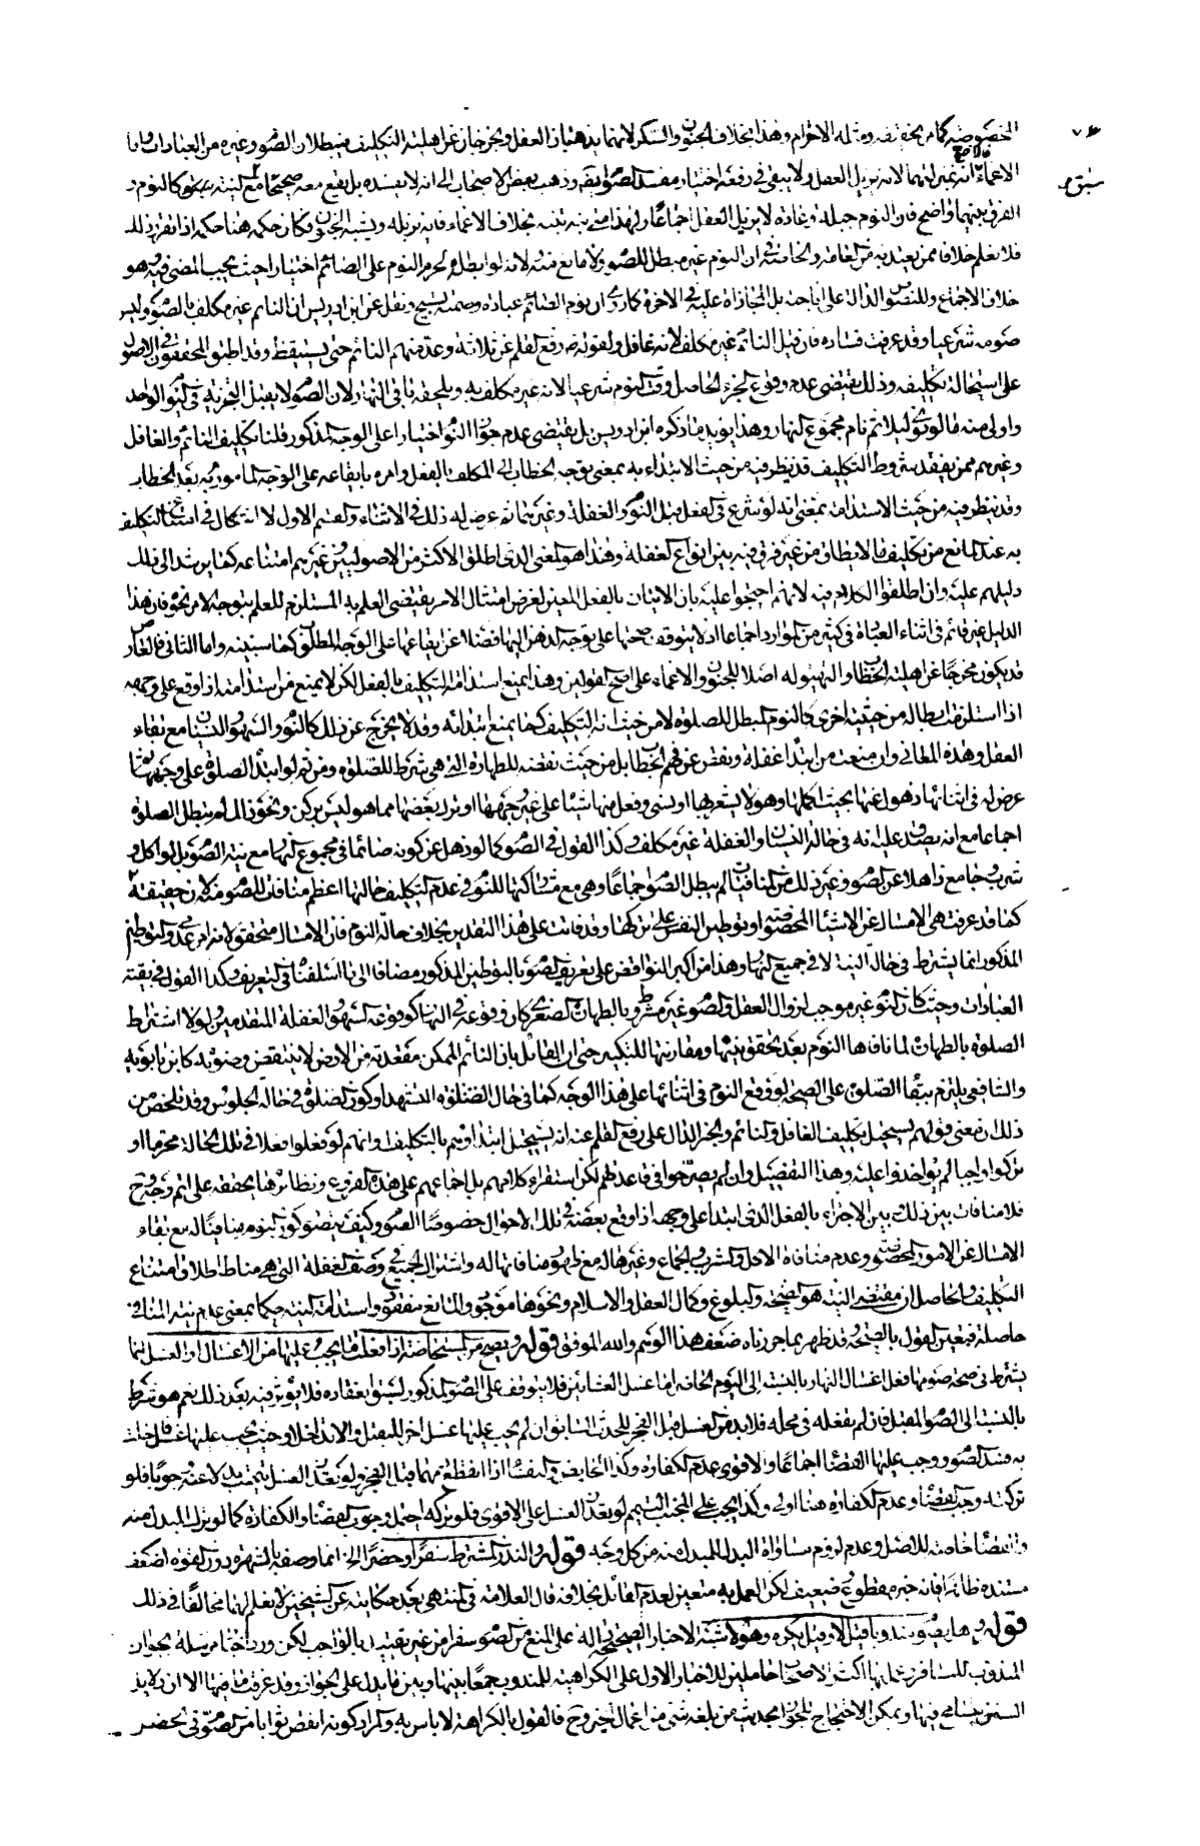 الخصوصية كما مر تحقيقه ومثله الاحرام وهذا بخلاف الجنون والسكر لانهما يذهبان العقل ويخرجان عن اهلية التكليف فيبطلان الصوم وغيره من العبادات واما
الاغماء فانه بمنزلتهما لانه يزيل العقل ولا يبقى في رفعه اختيار مفسد للصوم وذهب بعض الاصحاب الى انه لا يفسده بل يقع معه صحيحا مع سبق النية كالنوم و
سبق م
الفرق بينهما واضح فان النوم جبلة وعادة لا يزيل العقل اجماعا ولهذا متى نبه تنبه بخلاف الاغماء فانه يزيله ويشبه الجنون فكان حكمه هنا حكمه اذا تقرر ذلك
فلا نعلم خلافا ممن يعتد به من العامة والخاصة في ان النوم غير مبطل للصوم ولا مانع منه ولانه لو ابطله لحرم النوم على الصائم اختيارا حيث يجب المضي فيه وهو
خلاف الاجماع وللنصوص الدالة على اباحته بل المجازاة عليه في الاخرة كما روي ان نوم الصائم عبادة وصمته تسبيح ونقل عن ابن ادريس ان النائم غير مكلف بالصوم وليس
صومه شرعيا وقد عرفت فساده فان قيل النائم غير مكلف لانه غافل ولقوله ص رفع القلم عن ثلاثة وعد منهم النائم حتى يستيقظ وقد اطبق المحققون في الاصول
على استحالة تكليفه وذلك يقتضي عدم وقوع الجزء الحاصل وقت النوم شرعيا لانه غير مكلف به ويلحقه باقي النهار لان الصوم لا يقبل التجزية في اليوم الواحد
واولى منه ما لو نوى ليلا ثم نام مجموع النهار وهذا يؤيد ما ذكره ابن ادريس بل يقتضي عدم جواز النوم اختيارا على الوجه المذكور قلنا تكليف النائم والغافل
وغيرهم ممن يفقد شروط التكليف قد ينظر فيه من حيث الابتداء به بمعنى توجه الخطاب الى المكلف بالفعل وامره بايقاعه على الوجه المامور به بعد الخطاب
وقد ينظر فيه من حيث الاستدامة بمعنى انه لو شرع في الفعل قبل النوم والغفلة وغيرهما ثم عرض له ذلك في الاثناء والقسم الاول لا اشكال في امتناع التكليف
به عند المانع من تكليف ما لا يطاق من غير فرق فيه بين انواع الغفلة وهذا هو المعنى الذي اطلق الاكثر من الاصوليين وغيرهم امتناعه كما يرشد الى ذلك
دليلهم عليه وان اطلقوا الكلام فيه لانهم احتجوا عليه بان الاتيان بالفعل المعين لغرض امتثال الامر يقتضي العلم به المستلزم للعلم بتوجه الامر نحوه فان هذا
الدليل غير قائم في اثناء العبادة في كثير من الموارد اجماعا اذ لا يتوقف صحتها على توجه الذهن اليها فضلا عن ايقاعها على الوجه المطلوب كما سنبينه واما الثاني فالعارض
قد يكون مخرجا عن اهلية الخطاب والتهيؤ له اصلا كالجنون والاغماء على اصح القولين وهذا يمنع استدامة التكليف بالفعل لكن لا يمنع من استدامته اذا وقع على وجهه
اذا استلزمت ابطاله من حيثية اخرى كالنوم المبطل للصلوة لا من حيث انه التكليف كما يمنع ابتدائه وقد لا يخرج عن ذلك كالنوم والسهو والنسيان مع بقاء
العقل وهذه المعاني وان منعت من ابتداء غفلة ونقض عن فهم الخطاب بل من حيث نقضه للطهارة التي هي شرط للصلوة ومن ثم لو ابتدأ الصلوة على وجهها ثم
عرض له في اثنائها ذهول عنها بحيث اكملها وهو لا يشعر بها او نسي وفعل منها شيئا على غير وجهها او ترك بعضها مما هو ليس بركن ونحو ذلك لم تبطل الصلوة
اجماعا مع انه يصدق عليه انه في حالة النسيان والغفلة غير مكلف وكذا القول في الصوم كما لو ذهل عن كونه صائما في مجموع النهار مع نية الصوم بل لو اكل و
شرب وجامع ذاهلا عن الصوم وغير ذلك من المنافيات لم يبطل الصوم اجماعا وهي مع مشاركتها للنوم في عدم التكليف حالتها اعظم منافاة للصوم منه لان حقيقته
كما قد عرفت هي الامساك عن الاشياء المخصوصة او توطين النفس على تركها وقد فاتت على هذا التقدير بخلاف حالة النوم فان الامساك متحقق لانه امر عدمي والتوطين
المذكور انما يشترط في حالة النية لا في جميع النهار وهذا من اكبر النواقض على تعريف الصوم بالتوطين المذكور مضافا الى ما اسلفناه في التعريف وكذا القول في بقية
العبادات وحيث كان النوم غير موجب لزوال العقل والصوم غير مشروط بالطهارة الصغرى كان وقوعه في النهار كوقوع السهو والغفلة المتقدمين ولولا اشتراط
الصلوة بالطهارة لما نافاها النوم بعد تحقق نيتها ومقارنتها للتكبير حتى ان القائل بان النائم الممكن مقعدته من الارض لا ينتقض وضوئه كابن بابويه
والشافعي يلتزم ببقاء الصلوة على الصحة لو وقع النوم في اثنائها على هذا الوجه كما في حال التشهد او كون الصلوة في حالة الجلوس وقد تلخص من
ذلك ان معنى قولهم يستحيل تكليف الغافل والنائم والخبر الدال على رفع القلم عنه انه يستحيل ابتداؤهم بالتكليف وانهم لو فعلوا فعلا في تلك الحالة محرما او
تركوا واجبا لم يؤاخذوا عليه وهذا التفصيل وان لم يصرحوا في قاعدتهم لكن استقراء كلامهم بل اجماعهم على هذه الفروع ونظائرها يحققه على اتم وجه وح
فلا منافاة بين ذلك وبين الاجزاء بالفعل الذي ابتدأ على وجهه اذا وقع بعضه في تلك الاحوال خصوصا الصوم وكيف يتصور كون النوم منافيا له مع بقاء
الامساك عن الامور المخصوصة وعدم منافاة الاكل والشرب والجماع وغيرها له مع ظهور منافاتها له واشتراك الجميع في وصف الغفلة التي هي مناط اطلاق امتناع
التكليف والحاصل ان مقتضى النية هو الصحة والبلوغ وكمال العقل والاسلام ونحوها موجود والمانع مفقود واستدامة النية حكما بمعنى عدم نية المنافي
حاصلة فتعين القول بالصحة وقد ظهر بما حررناه ضعف هذا الوهم والله الموفق قوله ويصح من المستحاضة اذا فعلت ما يجب عليها من الاغسال او الغسل انما
يشترط في صحة صومها فعل اغسال النهار بالنسبة الى اليوم الحاضر اما غسل العشائين فلا يتوقف على الصوم المذكور لسبق انعقاده فلا يؤثر فيه بعد ذلك نعم هو شرط
بالنسبة الى الصوم المقبل فان لم تفعله في محله فلا بد من الغسل قبل الفجر للحدث السابق وان لم يجب عليها غسل اخر للمقبل والا تداخلا وحيث يجب عليها غسل فاخلت
به فسد الصوم ووجب عليها القضاء اجماعا والاقوى عدم الكفارة وكذا الحائض والنفساء اذا انقطع دمهما قبل الفجر ولو تعذر الغسل تيممت بدلا عنه وجوبا فلو
تركته وجب القضاء وعدم الكفارة هنا اولى وكذا يجب على المجنب التيمم لو تعذر الغسل على الاقوى فلو تركه احتمل وجوب القضاء والكفارة كما لو ترك المبدل منه
والقضاء خاصة للاصل وعدم لزوم مساواة البدل للمبدل منه من كل وجه قوله والنذر المشترط سفرا وحضرا الخ انما وصفه بالشهرة دون القوة لضعف
مستنده ظاهرا فانه خبر مقطوع ضعيف لكن العمل به متعين لعدم القائل بخلافه قال العلامة في المنتهى بعد حكايته عن الشيخين لا نعلم لهما مخالفا في ذلك
قوله وهل يصوم مندوبا قيل لا وقيل يكره وهو الاشبه الاخبار الصحيحة دالة على المنع من الصوم سفرا من غير تقييد بالواجب لكن ورد اخبار مرسلة بجواز
المندوب للمسافر عمل بها اكثر الاصحاب حاملين للاخبار الاول على الكراهية للمندوب جمعا بينها وبين ما يدل على الجواز وقد عرفت ما فيها الا ان دلائل
السنن يتسامح فيها ويمكن الاحتجاج للجواز بحديث من بلغه شيء من اعمال الخير وح فالقول بالكراهة لا باس به والمراد كونه انقص ثوابا من الصوم في الحضر